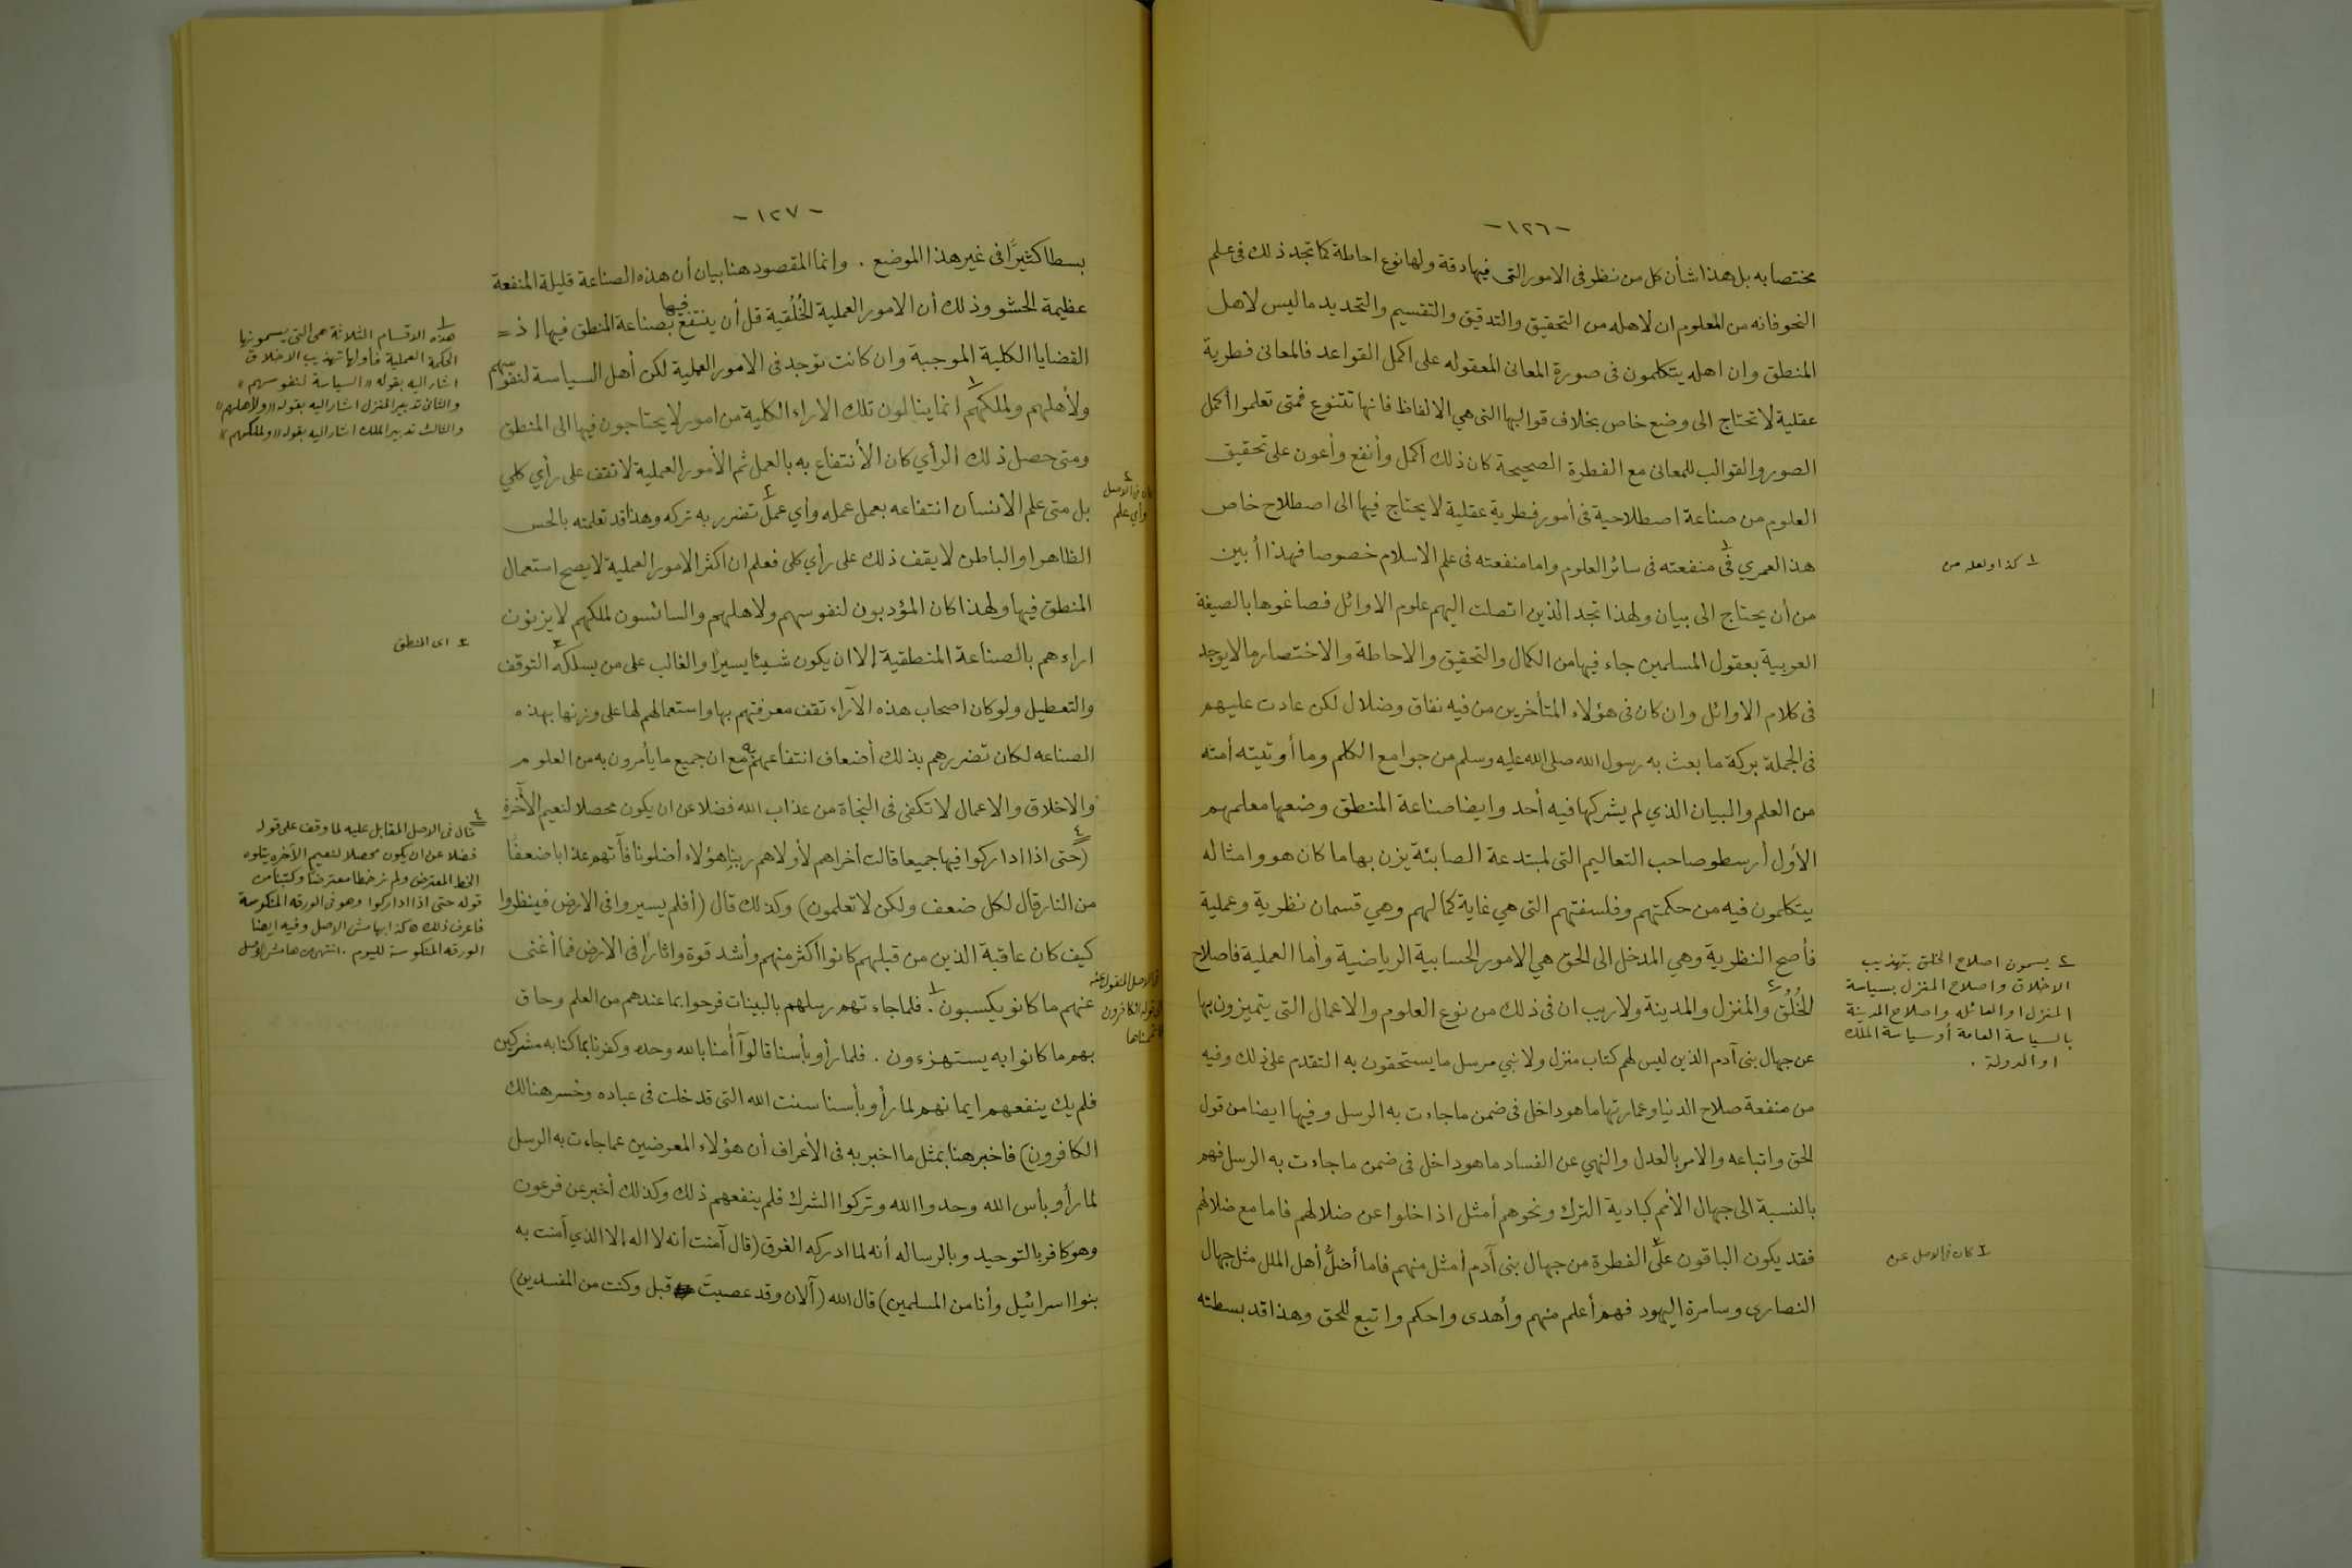 -١٢٦-
مختصا به بل هذا شأن كل من نظر فى الامور التى فيها دقة ولها نوع احاطة كما تجد ذلك فى علم
النحو فانه من المعلوم ان لاهله من التحقيق والتدقيق والتقسيم والتحديد ما ليس لاهل
المنطق وان اهله يتكلمون فى صورة المعانى المعقوله على اكمل القواعد فالمعانى فطرية
عقلية لا تحتاج الى وضع خاص بخلاف قوالبها التى هي الالفاظ فانها تتنوع فمتى تعلموا أكمل
الصور والقوالب للمعانى مع الفطرة الصحيحة كان ذلك أكمل وأنفع وأعون على تحقيق
العلوم من صناعة اصطلاحية فى أمور فطرية عقلية لا يحتاج فيها الى اصطلاح خاص
هذا لعمري فى ١ منفعته فى سائر العلوم واما منفعته فى علم الاسلام خصوصا فهذا أبين
من أن يحتاج الى بيان ولهذا تجد الذين اتصلت اليهم علوم الاوائل فصاغوها بالصيغة
العربية بعقول المسلمين جاء فيها من الكمال والتحقيق والاحاطة والاختصار مالا يوجد
فى كلام الاوائل وان كان فى هؤلاء المتأخرين من فيه نفاق وضلال لكن عادت عليهم
فى الجملة بركة ما بعث به رسول الله صلى الله عليه وسلم من جوامع الكلم وما أوتيته أمته
من العلم والبيان الذي لم يشركها فيه أحد وايضا صناعة المنطق وضعها معلمهم
الأول أرسطو صاحب التعاليم التى لمبتدعة الصابئة يزن بها ما كان هو وامثاله
يتكلمون فيه من حكمتهم وفلسفتهم التى هي غاية كمالهم وهي قسمان نظرية وعملية
فأصح النظرية وهي المدخل الى الحق هي الامور الحسابية الرياضية وأما العملية فاصلاح
الخُلُق ٢ والمنزل والمدينة ولا ريب ان فى ذلك من نوع العلوم والاعمال التى يتميزون بها
عن جهال بنى آدم الذين ليس لهم كتاب منزل ولا نبي مرسل ما يستحقون به التقدم على ذلك وفيه
من منفعة صلاح الدنيا وعمارتها ما هو داخل فى ضمن ما جاءت به الرسل وفيها ايضا من قول
الحق واتباعه والامر بالعدل والنهي عن الفساد ما هو داخل فى ضمن ما جاءت به الرسل فهم
بالنسبة الى جهال الأمم كبادية الترك ونحوهم أمثل اذا خلوا عن ضلالهم فاما مع ضلالهم
فقد يكون الباقون على ٣ الفطرة من جهال بنى آدم أمثل منهم فاما أضلُّ أهل الملل مثل جهال
النصارى وسامرة اليهود فهم أعلم منهم وأهدى واحكم واتبع للحق وهذا قد بسطته
١ كذا ولعله من
٢ يسمون اصلاح الخلق بتهذيب
الاخلاق واصلاح المنزل بسياسة
المنزل او العائله واصلاح المدينة
بالسياسة العامة أو سياسة الملك
او الدولة .
٣ كان فى الاصل عن
-١٢٧-
بسطا كثيرًا فى غير هذا الموضع . وانما المقصود هنا بيان أن هذه الصناعة قليلة المنفعة
عظيمة الحشو وذلك أن الامور العملية الخُلُقية قل أن ينتفع فيها بصناعة المنطق فيها إذ =
القضايا الكلية الموجبة وان كانت توجد فى الامور العملية لكن أهل السياسة لنفوسهم
ولأهلهم ولملكهم ١ انما ينالون تلك الاراء الكلية من امور لا يحتاجون فيها الى المنطق
ومتى حصل ذلك الرأي كان الأنتفاع به بالعمل ثم الأمور العملية لا تقف على رأي كلي
بل متى علم الانسان انتفاعه بعمل عمله وأي عمل ٢ تضرر به تركه وهذا قد تعلمته بالحس
الظاهر او الباطن لا يقف ذلك على رأي كلى فعلم ان اكثر الامور العملية لا يصح استعمال
المنطق فيها ولهذا كان المؤدبون لنفوسهم ولاهلهم والسائسون لملكهم لا يزنون
اراءهم بالصناعة المنطقية إلا ان يكون شيئا يسيرًا والغالب على من يسلكه ٣ التوقف
والتعطيل ولو كان اصحاب هذه الآراء تقف معرفتهم بها واستعمالهم لها على وزنها بهذه
الصناعه لكان تضررهم بذلك أضعاف انتفاعهم به مع ان جميع ما يأمرون به من العلوم
والاخلاق والاعمال لا تكفى فى النجاة من عذاب الله فضلا عن ان يكون محصلا لنعيم الآخرة
٤ (حتى اذا اداركوا فيها جميعا قالت أخراهم لأولاهم ربنا هؤلاء أضلونا فآتهم عذابا ضعفًا
من النار قال لكل ضعف ولكن لا تعلمون) وكذلك قال (أفلم يسيروا فى الارض فينظروا
كيف كان عاقبة الذين من قبلهم كانوا أكثر منهم وأشد قوة واثارًا فى الارض فما أغنى
عنهم ما كانو يكسبون ١ . فلما جاءتهم رسلهم بالبينات فرحوا بما عندهم من العلم وحاق
بهم ما كانوا به يستهزءون . فلما رأو بأسنا قالوآ أمنا بالله وحده وكفرنا بما كنا به مشركين
فلم يك ينفعهم ايمانهم لما رأو بأسنا سنت الله التى قد خلت فى عباده وخسر هنالك
الكافرون) فاخبر هنا بمثل ما اخبر به فى الأعراف أن هؤلاء المعرضين عما جاءت به الرسل
لما رأو بأس الله وحدوا الله وتركوا الشرك فلم ينفعهم ذلك وكذلك أخبر عن فرعون
وهو كافر بالتوحيد وبالرساله أنه لما ادركه الغرق (قال آمنت أنه لا اله الا الذي آمنت به
بنوا اسرائيل وأنا من المسلمين) قال الله (آلان وقد عصيتَ قبل وكنت من المفسدين)
٢ كان فى الاصل
وأي علم
فى الاصل المنقول عنه
الى قوله الكافرون
١ هذه الاقسام الثلاثة هى التى يسمونها
الحكمة العملية فأولها تهذيب الاخلاق
اشار اليه بقوله «السياسة لنفوسهم»
والثانى تدبير المنزل اشار اليه بقوله «ولأهلهم»
والثالث تدبير الملك اشار اليه بقوله «ولملكهم»
٣ اى المنطق
٤ قال فى الاصل المقابل عليه لما وقف على قوله
فضلا عن ان يكون محصلا لنعيم الآخره يتلوه
الخط المعترض ولم نر خطا معترضًا وكتبنا من
قوله حتى اذا اداركوا وهو فى الورقه المنكوسة
فاعرف ذلك ه كذا بهامش الاصل وفيه ايضا
الورقه المنكوسة لليوم . انتهى من هامش الاصل